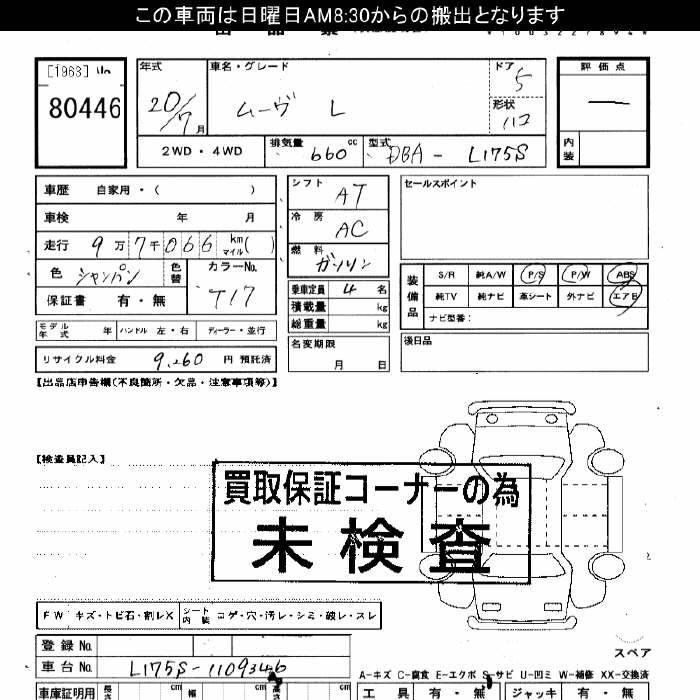 この車両は日曜日AM8:30からの搬出となります
[1963]
80446
年式
車名・グレード
ドア
評価点
20/7月
ムーヴ L
5
形状
ハコ
2WD・4WD
排気量 660 cc
型式 DBA - L175S
内装
車歴 自家用・( )
シフト AT
セールスポイント
車検 年 月
冷房 AC
走行 9万7千066 km マイル( )
燃料 ガソリン
色 シャンパン
色替
カラーNo. T17
装備品
S/R 純A/W P/S P/W ABS
純TV 純ナビ 革シート 外ナビ エアB
ナビ型番:
保証書 有・無
乗車定員 4 名
積載量 kg
総重量 kg
モデル年式 年 ハンドル 左・右 ディーラー・並行
名変期限 月 日
後日品
リサイクル料金 9,260 円 預託済
【出品店申告欄(不良箇所・欠品・注意事項等)】
【検査員記入】
買取保証コーナーの為
未検査
FW キズ・トビ石・割レX
シート内装 コゲ・穴・汚レ・シミ・破レ・スレ
登録No.
スペア
車台No. L175S-1109346
A-キズ C-腐食 E-エクボ S-サビ U-凹ミ W-補修 XX-交換済
車庫証明用 長さ cm 幅 cm 高さ cm
工具 有・無 ジャッキ 有・無